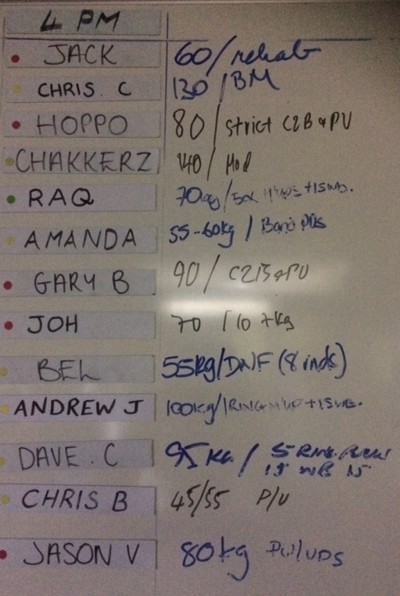 4 PM
JACK 60/rehab
CHRIS. C 130/BM
HOPPO 80/strict C2B & PU
CHAKKERZ 140/Mod
RAQ 70kg/
AMANDA 55-60kg/Band
GARY B 90/C2B & PU
JOH 70/10 7kg
BEL 55kg/DNF (8 inds)
ANDREW J 100kg/
DAVE. C 95kg/5
CHRIS B 45/55 P/U
JASON V 80kg Pullups